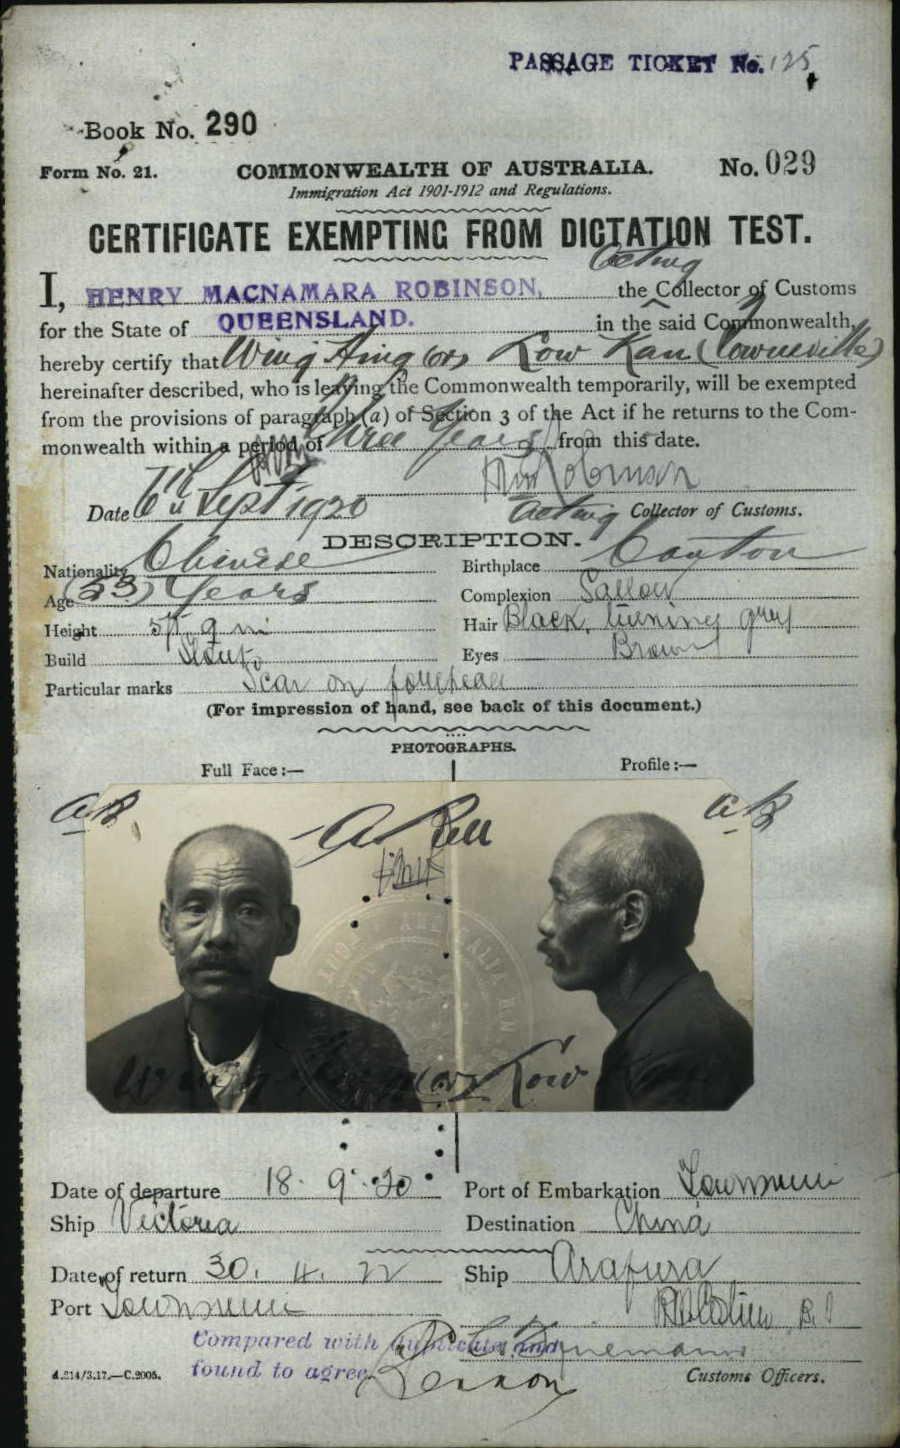 PASSAGE TICKET No. 125
Book No. 290
Form No. 21. COMMONWEALTH OF AUSTRALIA. No. 029
Immigration Act 1901-1912 and Regulations.
CERTIFICATE EXEMPTING FROM DICTATION TEST.
Acting
I, HENRY MACNAMARA ROBINSON, the Collector of Customs
for the State of QUEENSLAND. in the said Commonwealth,
hereby certify that Wing Hing (or) Low Kan (Townsville)
hereinafter described, who is leaving the Commonwealth temporarily, will be exempted
from the provisions of paragraph (a) of Section 3 of the Act if he returns to the Com-
monwealth within a period of Three Years from this date.
HM Robinson
Date 6th Sept 1920 Acting Collector of Customs.
DESCRIPTION.
Nationality Chinese Birthplace Canton
Age (53) Years Complexion Sallow
Height 5ft 9 in Hair Black, turning grey
Build Stout Eyes Brown
Particular marks Scar on forehead
(For impression of hand, see back of this document.)
PHOTOGRAPHS.
Full Face:— Profile:—
Date of departure 18. 9. 20 Port of Embarkation Townsville
Ship Victoria Destination China
Date of return 30. 4. 22 Ship Arafura
Port Townsville
Compared with duplicate and
found to agree
A.214/3.17.—C.2005. Customs Officers.